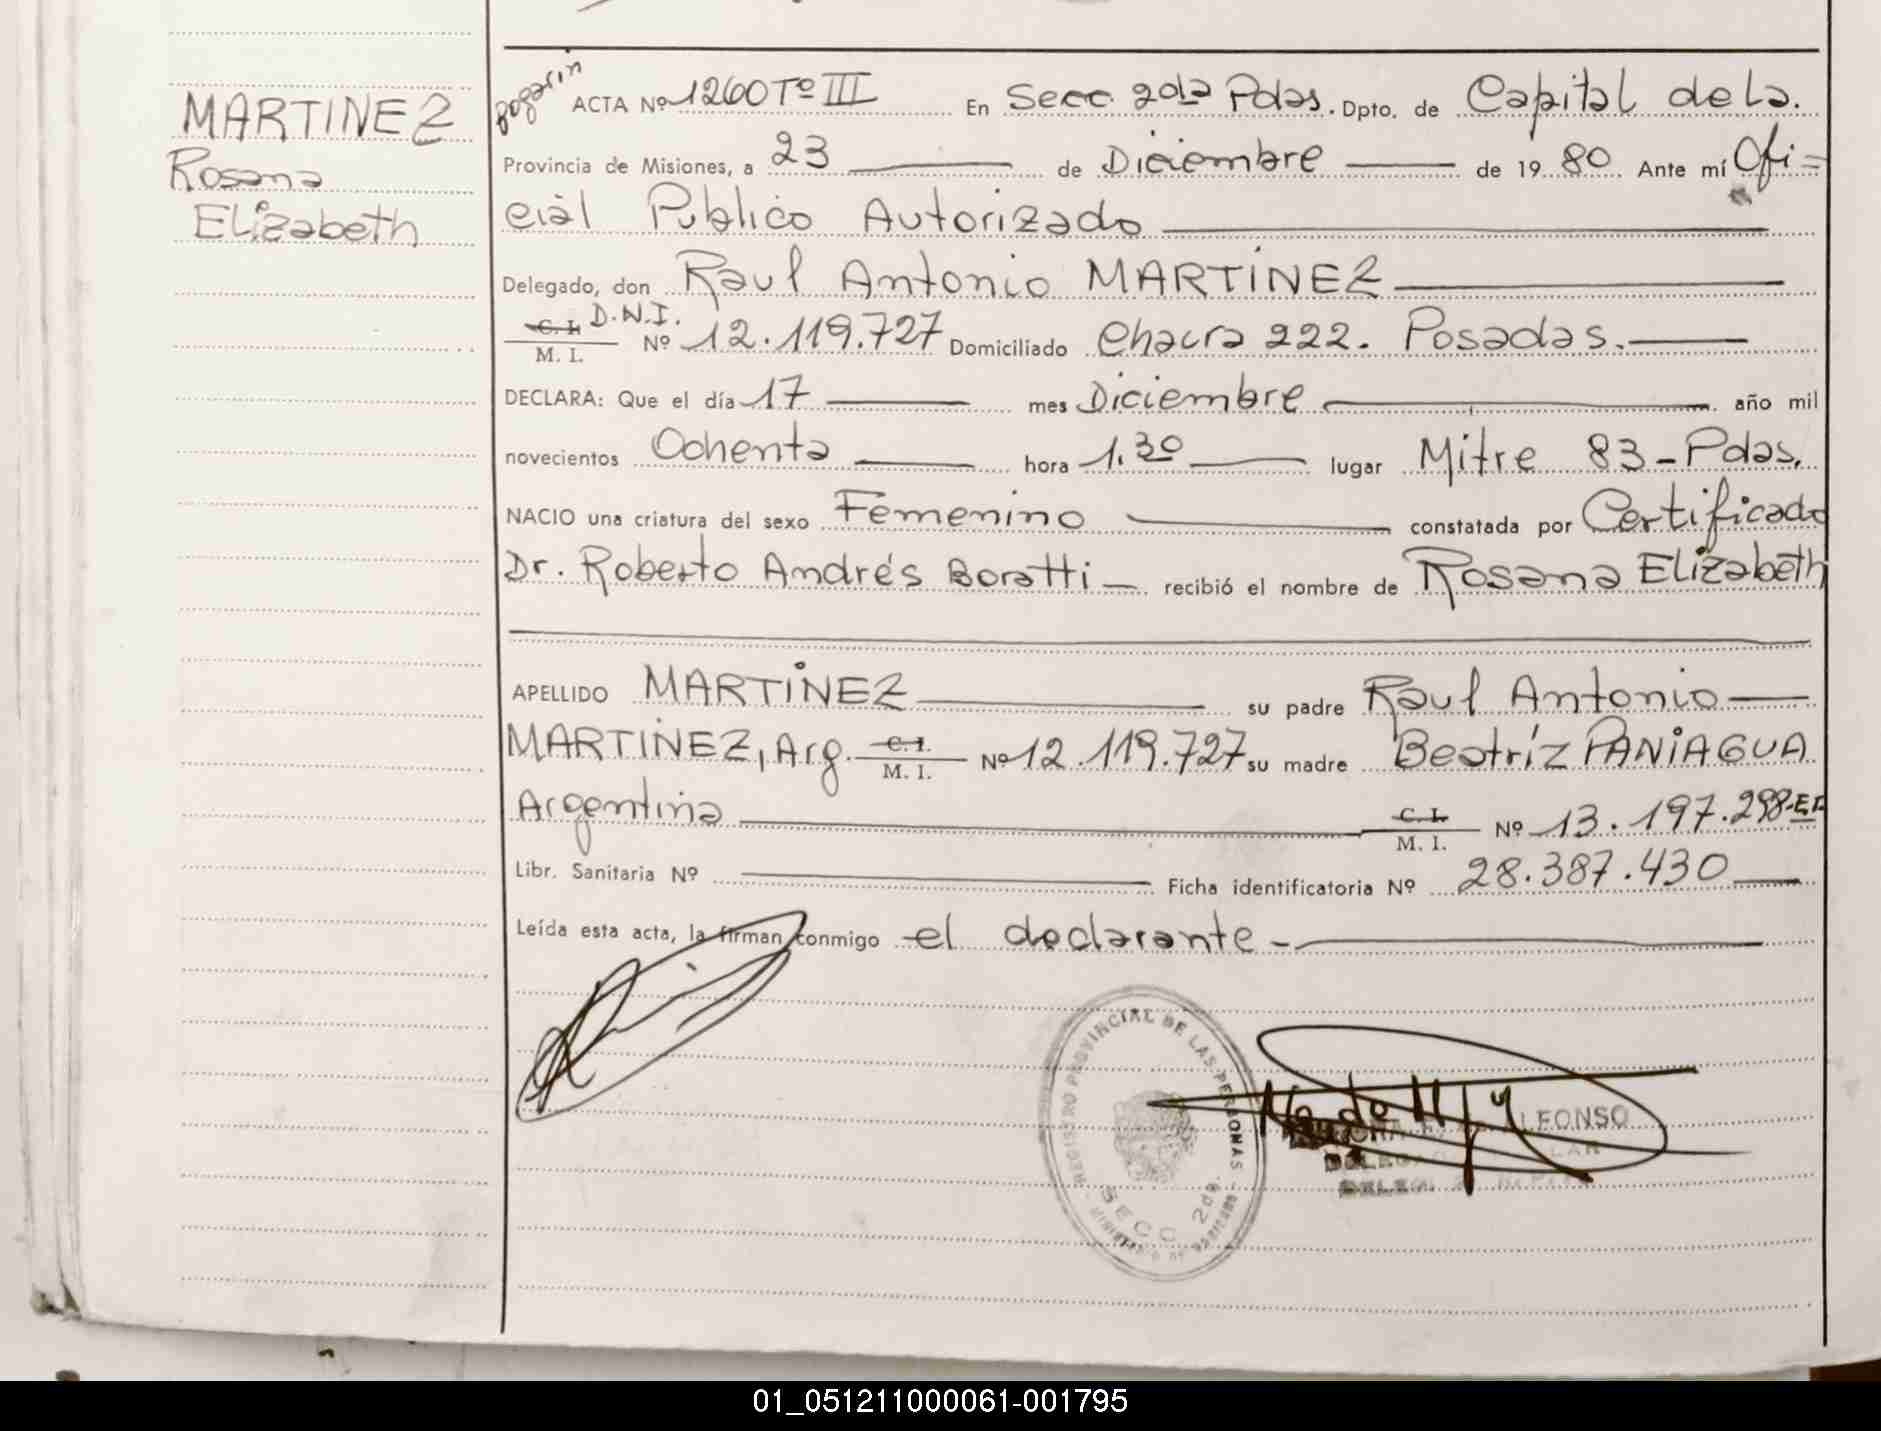 MARTINEZ
Rosana
Elizabeth
Bogarin
ACTA Nº 1260 Tº III En Secc. 2da Pdas. Dpto. de Capital de la.
Provincia de Misiones, a 23 de Diciembre de 19 80 Ante mí Ofi=
cial Publico Autorizado
Delegado, don Raul Antonio MARTINEZ
C. I. D.N.I.
M. I. Nº 12.119.727 Domiciliado Chacra 222. Posadas.
DECLARA: Que el día 17 mes Diciembre año mil
novecientos Ochenta hora 1.30 lugar Mitre 83 - Pdas.
NACIO una criatura del sexo Femenino constatada por Certificado
Dr. Roberto Andrés Boratti recibió el nombre de Rosana Elizabeth
APELLIDO MARTINEZ su padre Raul Antonio
MARTINEZ, Arg. C. I. M. I. Nº 12.119.727 su madre Beatríz PANIAGUA
Argentina C. I. M. I. Nº 13.197.298-
Libr. Sanitaria Nº Ficha identificatoria Nº 28.387.430
Leída esta acta, la firman conmigo el declarante -
REGISTRO PROVINCIAL DE LAS PERSONAS
SECC. 2da.
ALFONSO
01_051211000061-001795